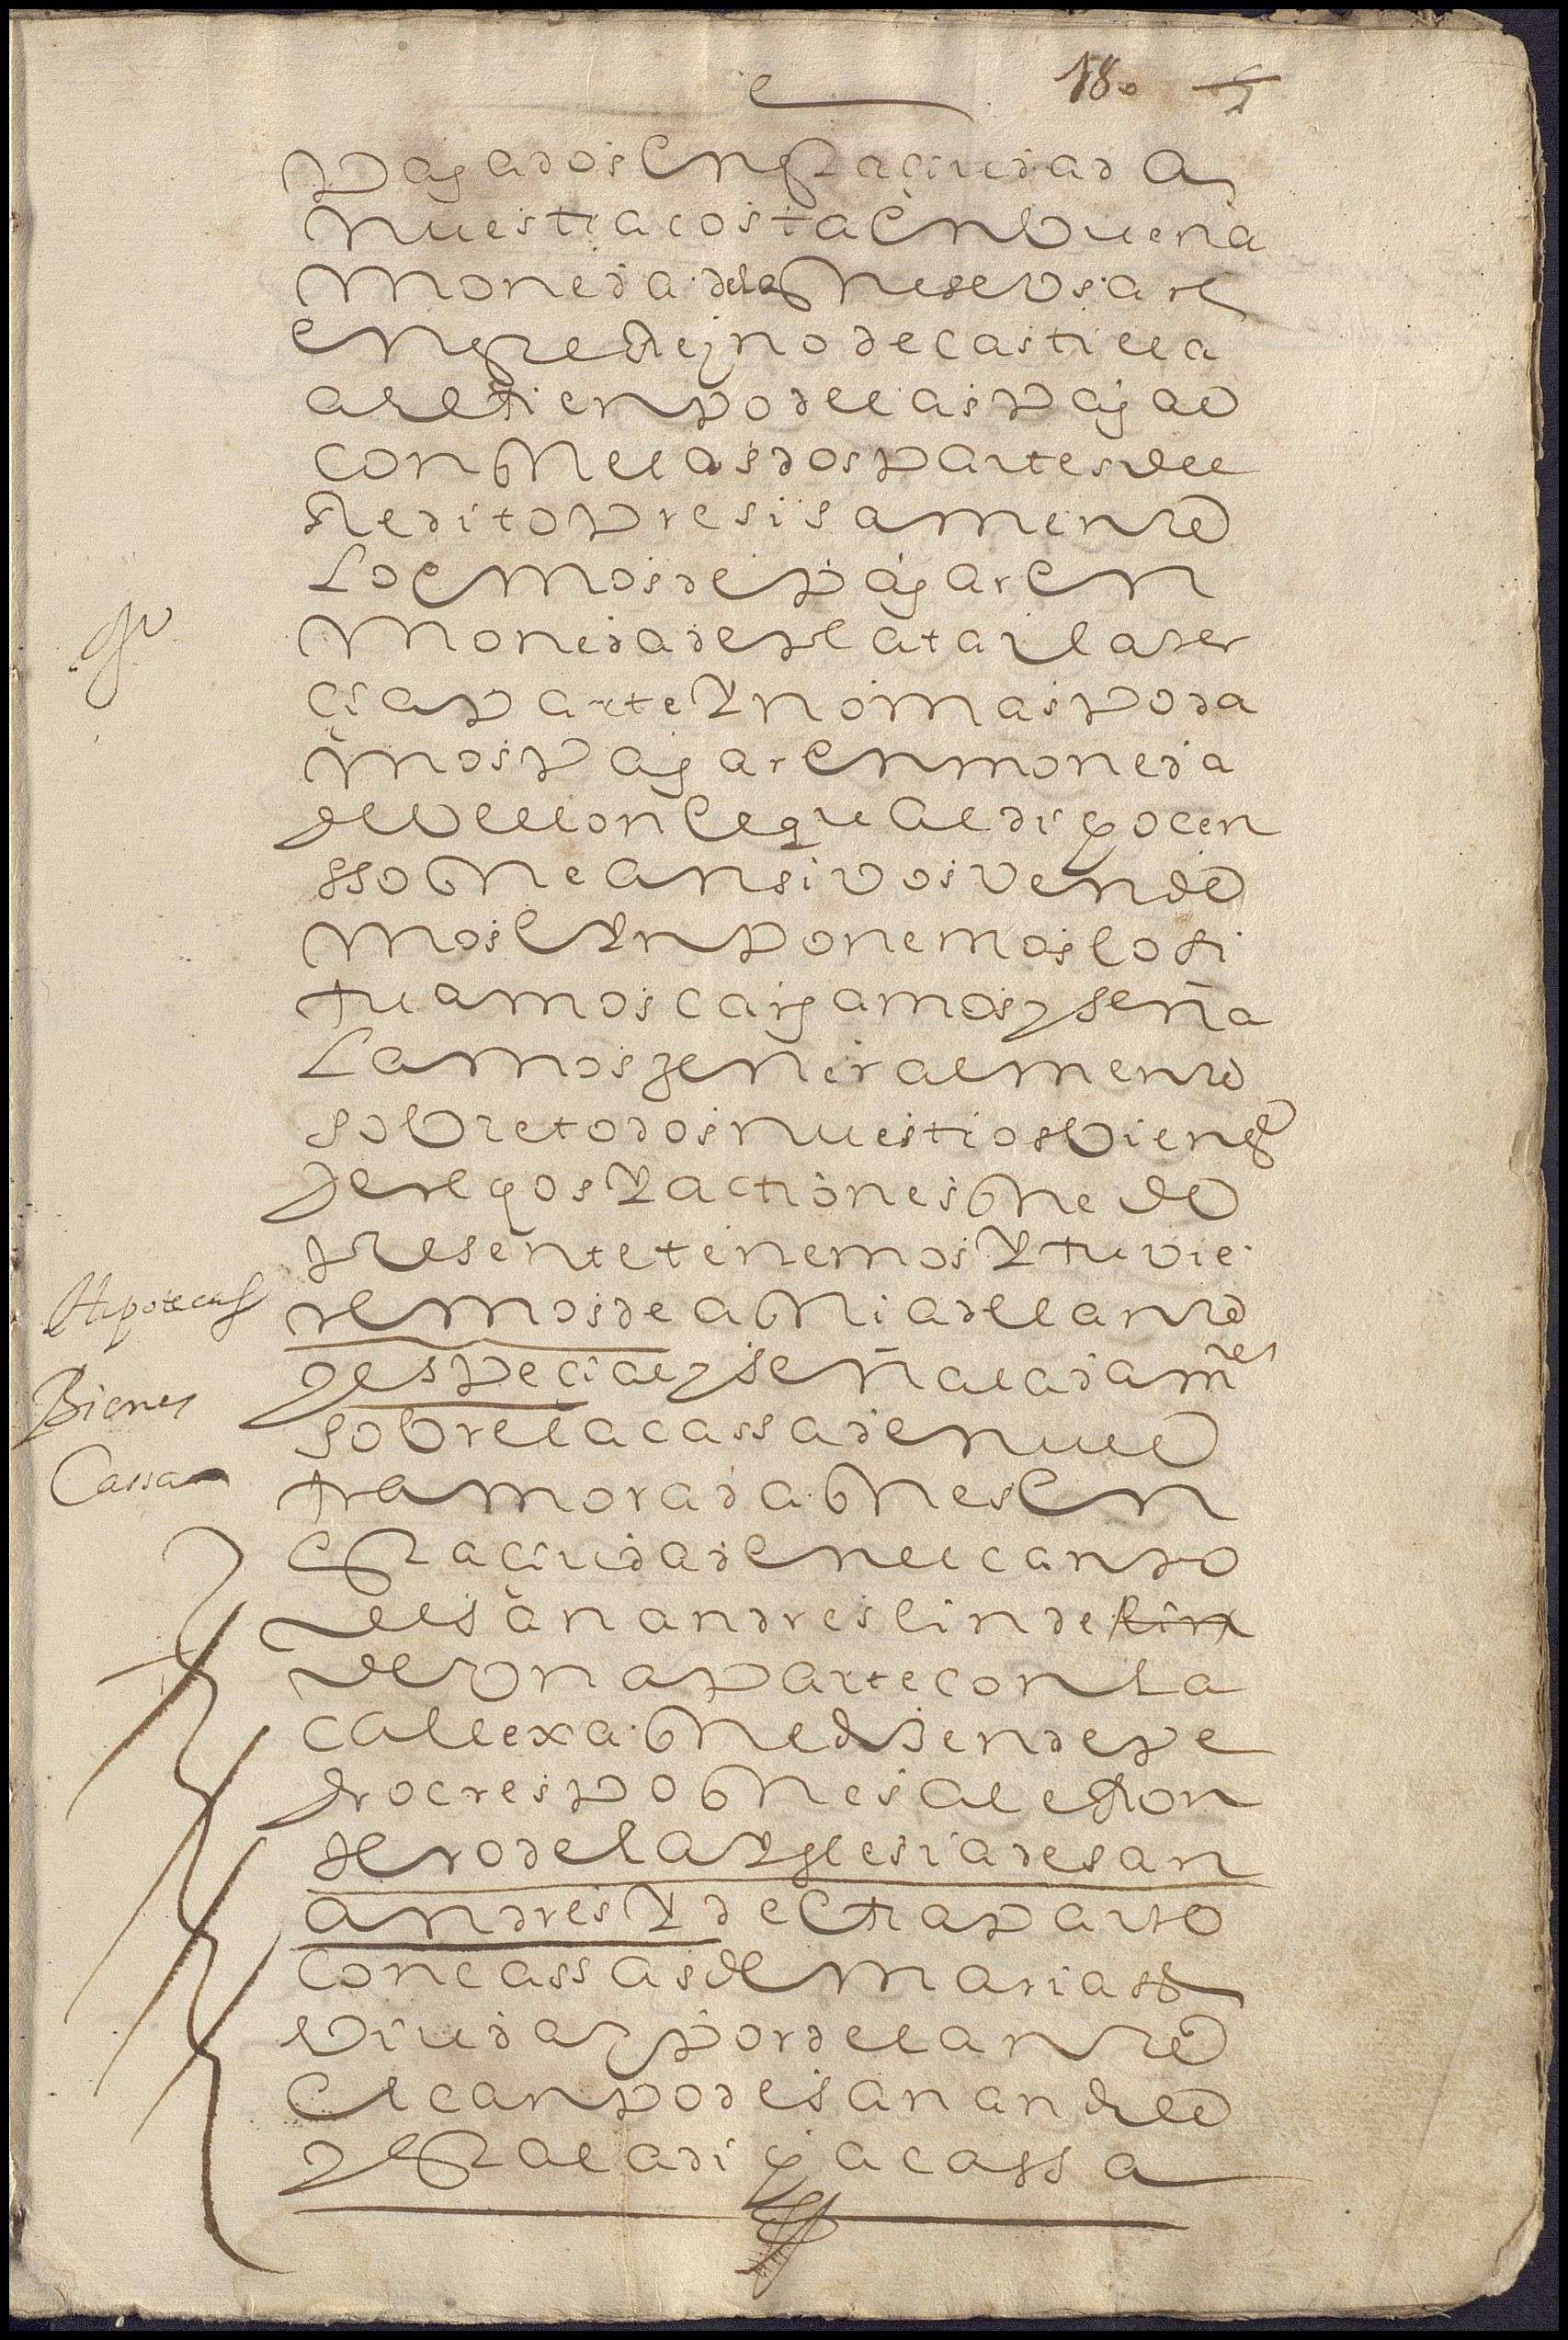 180 5
pagados en esta ciudad a
nuestra costa en buena
moneda de la que se usare
en este Reyno de castilla
a el tienpo de las pagas
con que las dos partes del
Redito presisamente
lo emos de pagar en
moneda de plata i la ter
cia parte y no mas poda
mos pagar en moneda
de vellon el qual dicho cen
sso que ansi vos vende
mos e ynponemos lo si
tuamos cargamos y seña
lamos generalmente
sobre todos nuestros bienes
derechos y actiones que de
presente tenemos y tuvie
remos de aqui adelante
Hipotecas
y especial y señaladamte
Bienes
sobre la cassa de nues
Cassa
tra morada que es en
esta ciudad en el canpo
de san andres linde lin
de una parte con la
callexa que disen de pe
dro crespo que sale a el Ron
dero de la yglesia de san
andres y de otra parte
con cassas de maria
viuda y por delante
el canpo de san andres
y esta la dicha cassa